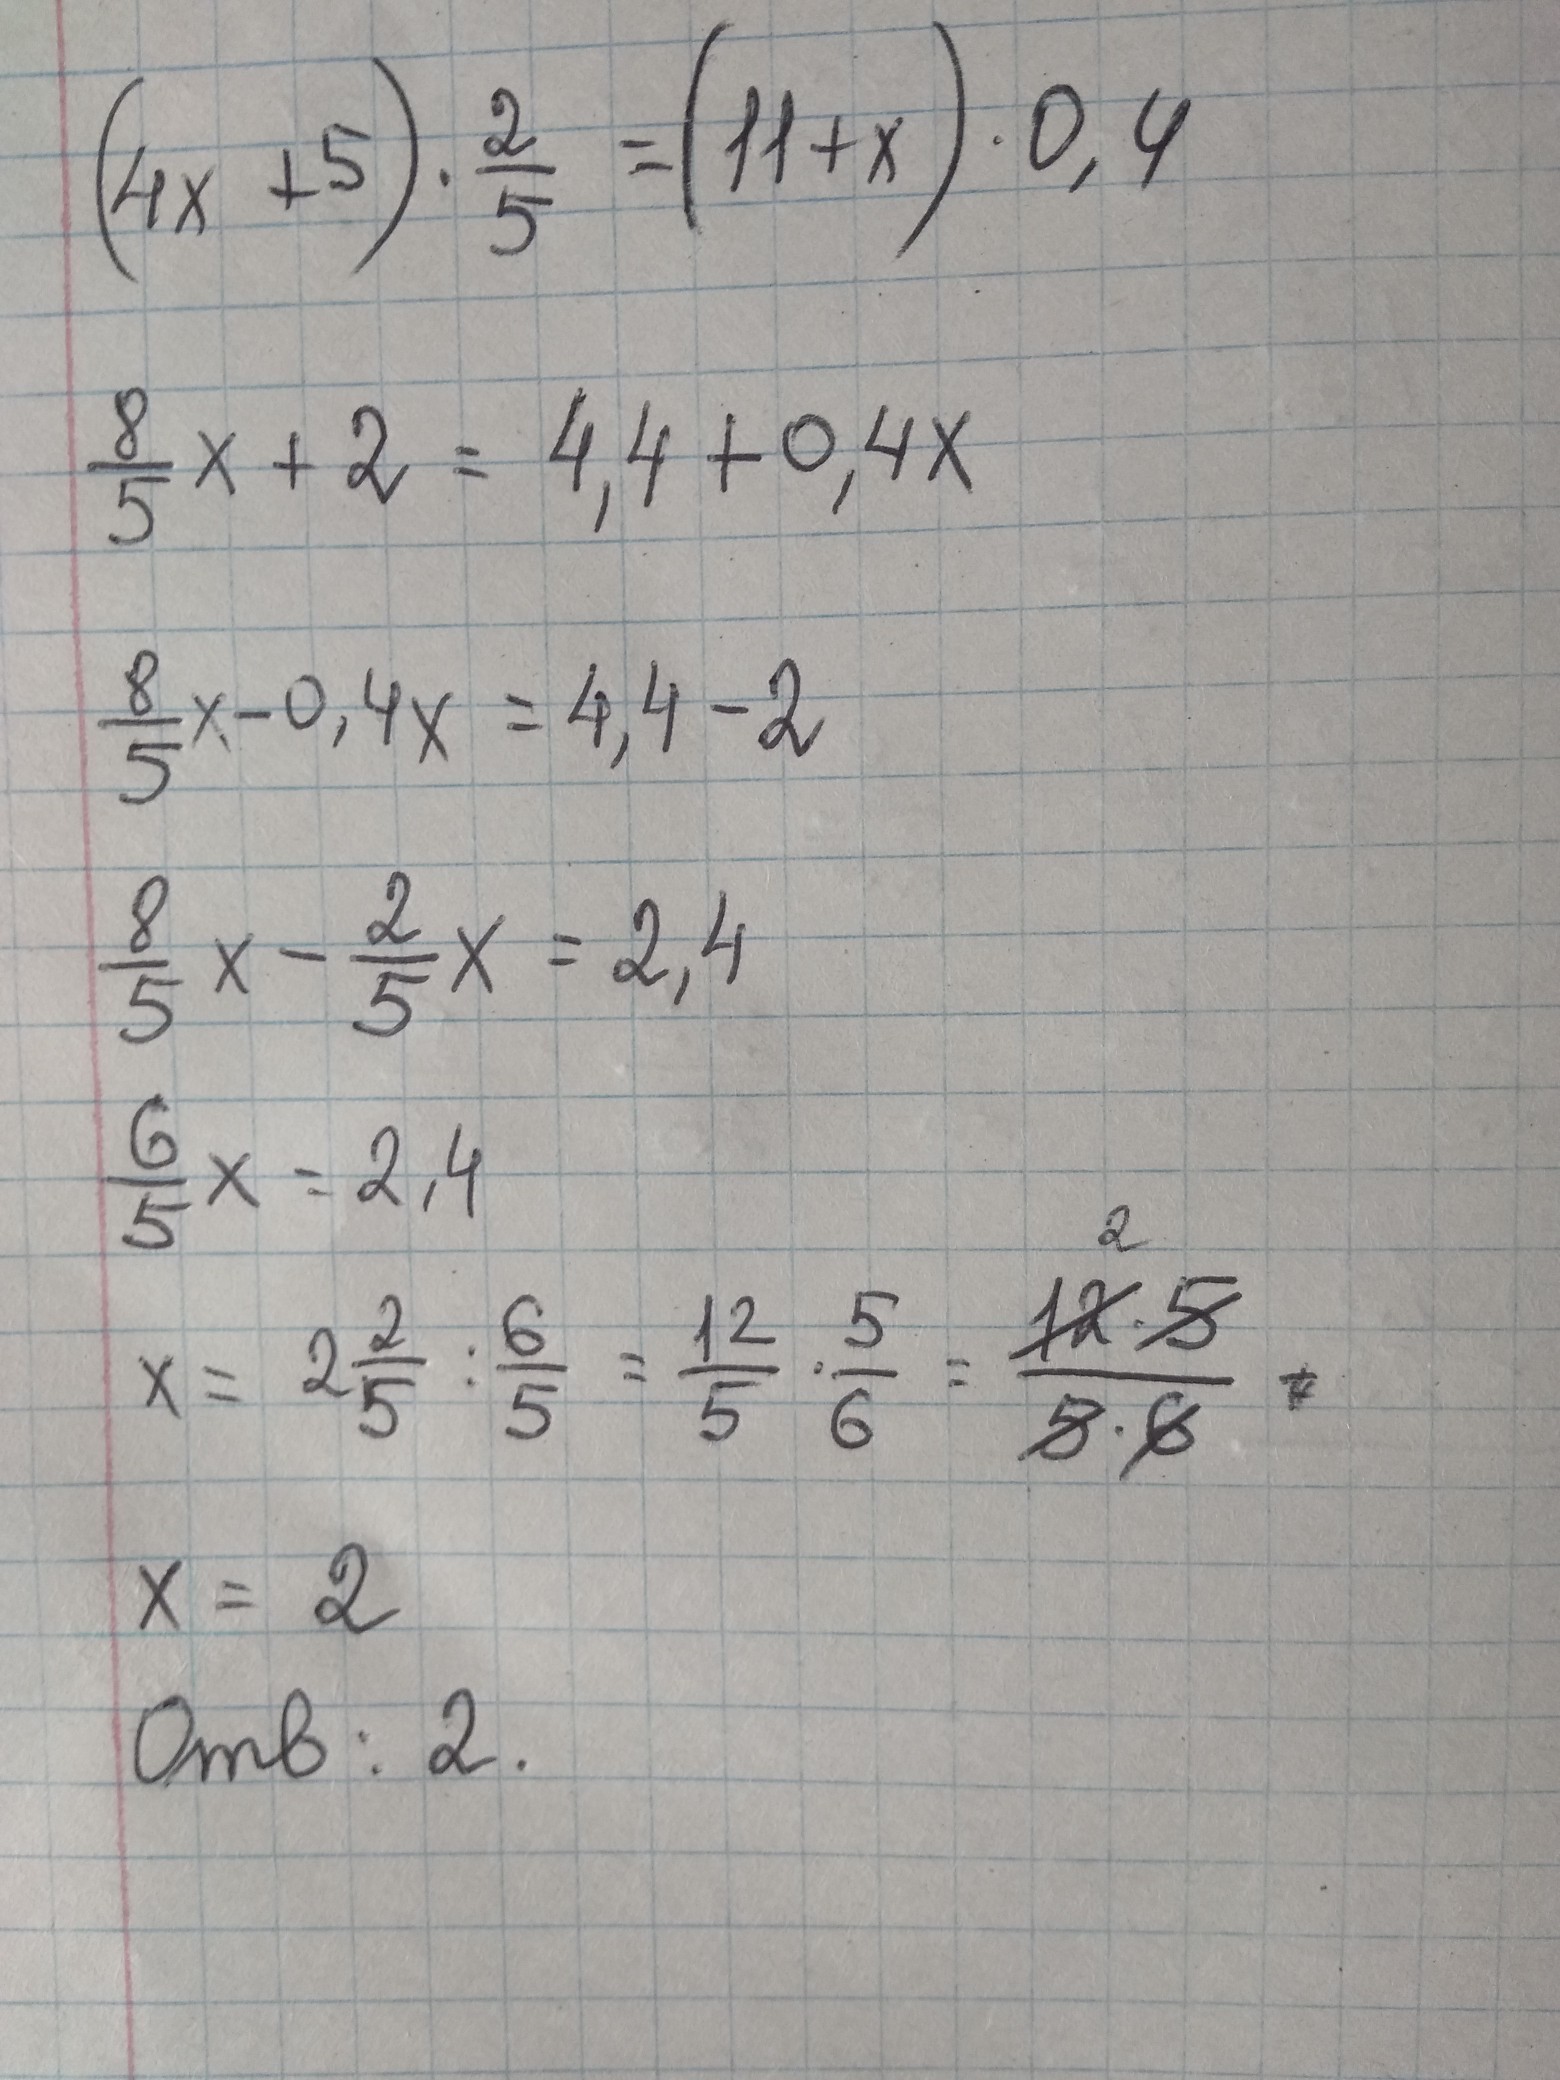 (4x + 5) · 2/5 = (11 + x) · 0,4
8/5 x + 2 = 4,4 + 0,4x
8/5 x - 0,4x = 4,4 - 2
8/5 x - 2/5 x = 2,4
6/5 x = 2,4
x = 2 2/5 : 6/5 = 12/5 · 5/6 = 12 · 5/5 · 6 2
x = 2
Отв: 2.